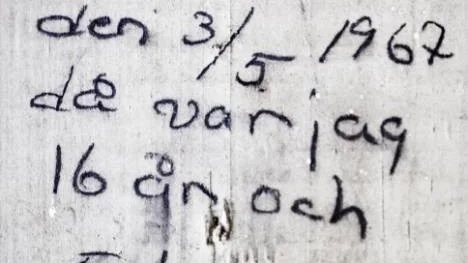 den 3/5 1967
då var jag
16 år och